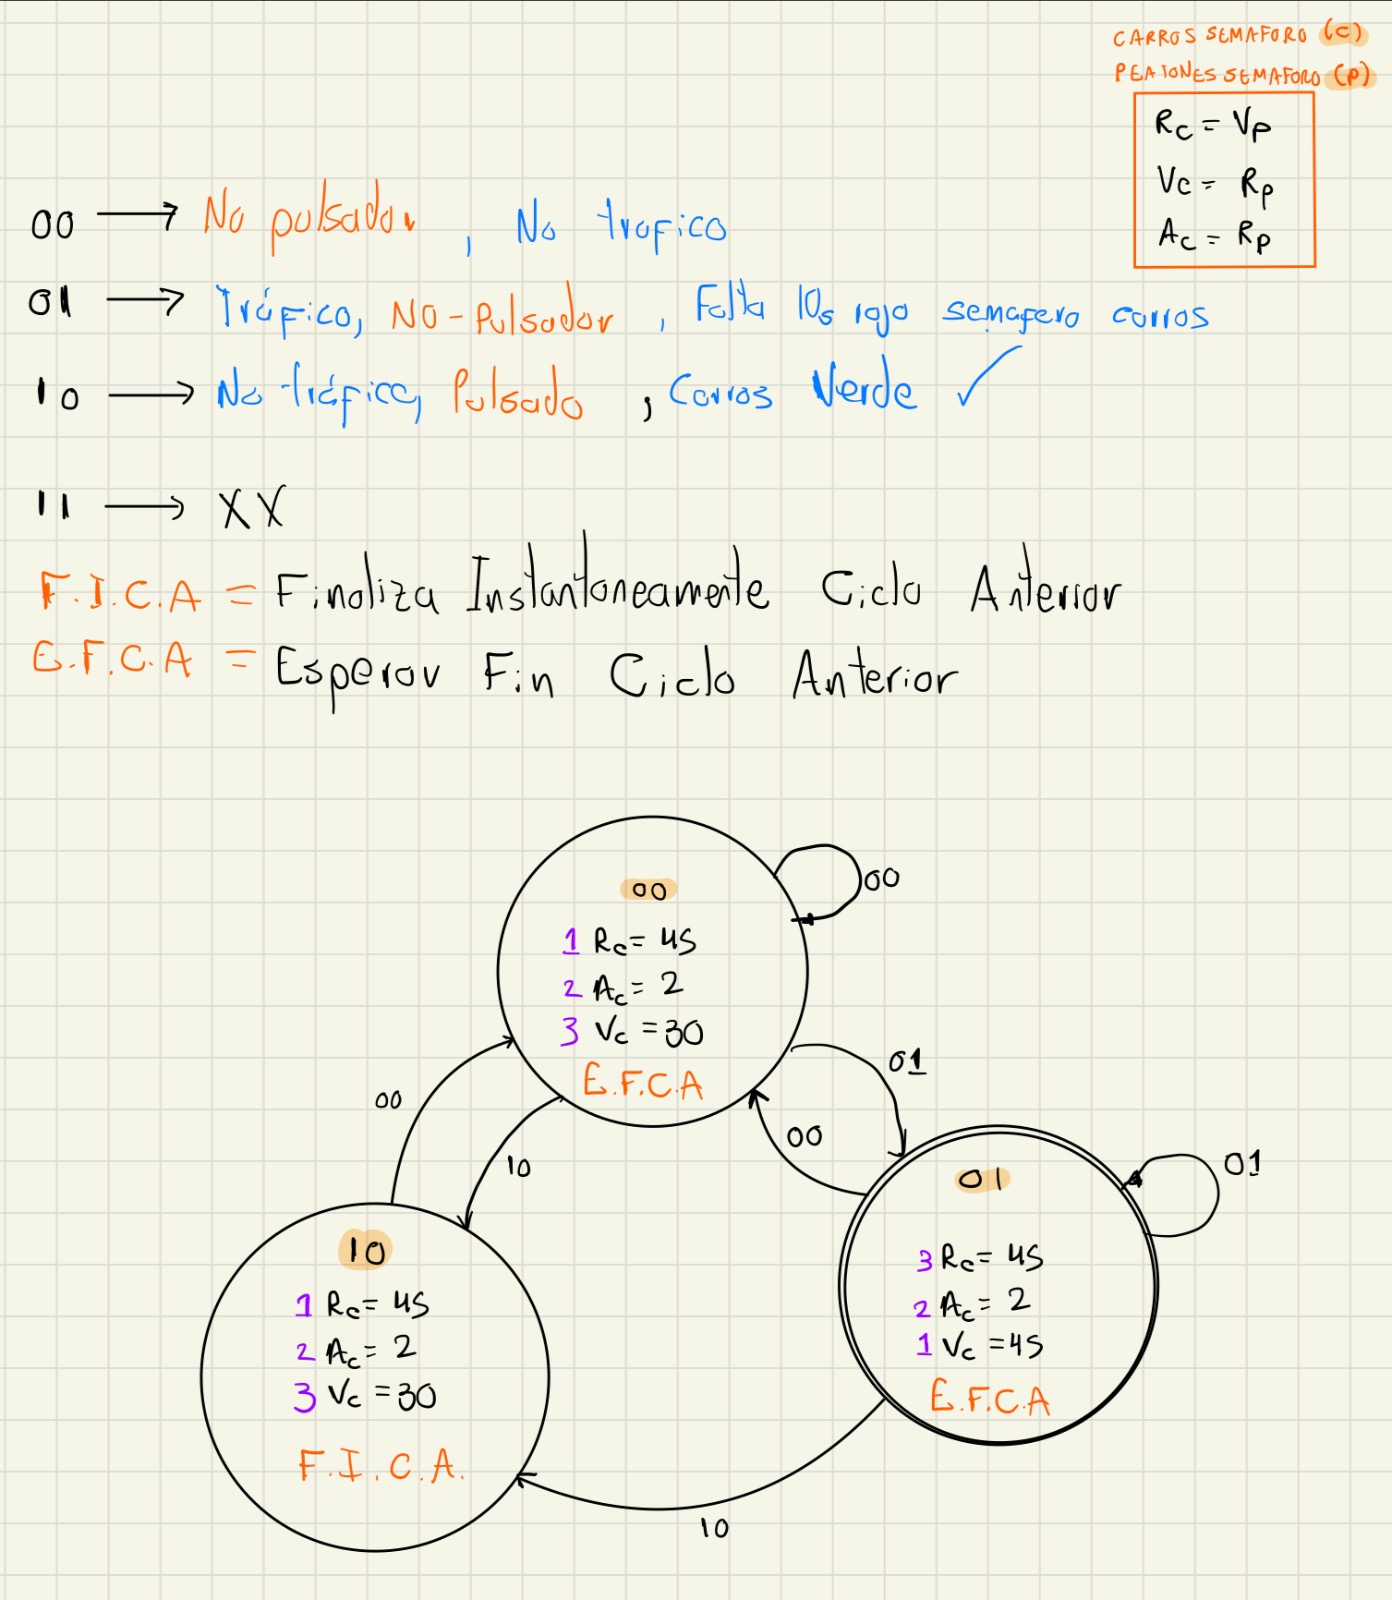 CARROS SEMAFORO (C)
PEATONES SEMAFORO (P)
Rc = Vp
Vc = Rp
Ac = Rp
00 → No pulsador, No trafico
01 → Tráfico, NO-Pulsador, Falta 10s rojo semafero carros
10 → No-tráfico, Pulsado, Carros Verde ✓
11 → XX
F.I.C.A = Finaliza Instantaneamente Ciclo Anterior
E.F.C.A = Esperar Fin Ciclo Anterior
00
00
1 Rc = 45
2 Ac = 2
3 Vc = 30
E.F.C.A
01
00
10
00
01
01
3 Rc = 45
2 Ac = 2
1 Vc = 45
E.F.C.A
10
1 Rc = 45
2 Ac = 2
3 Vc = 30
F.I.C.A.
10